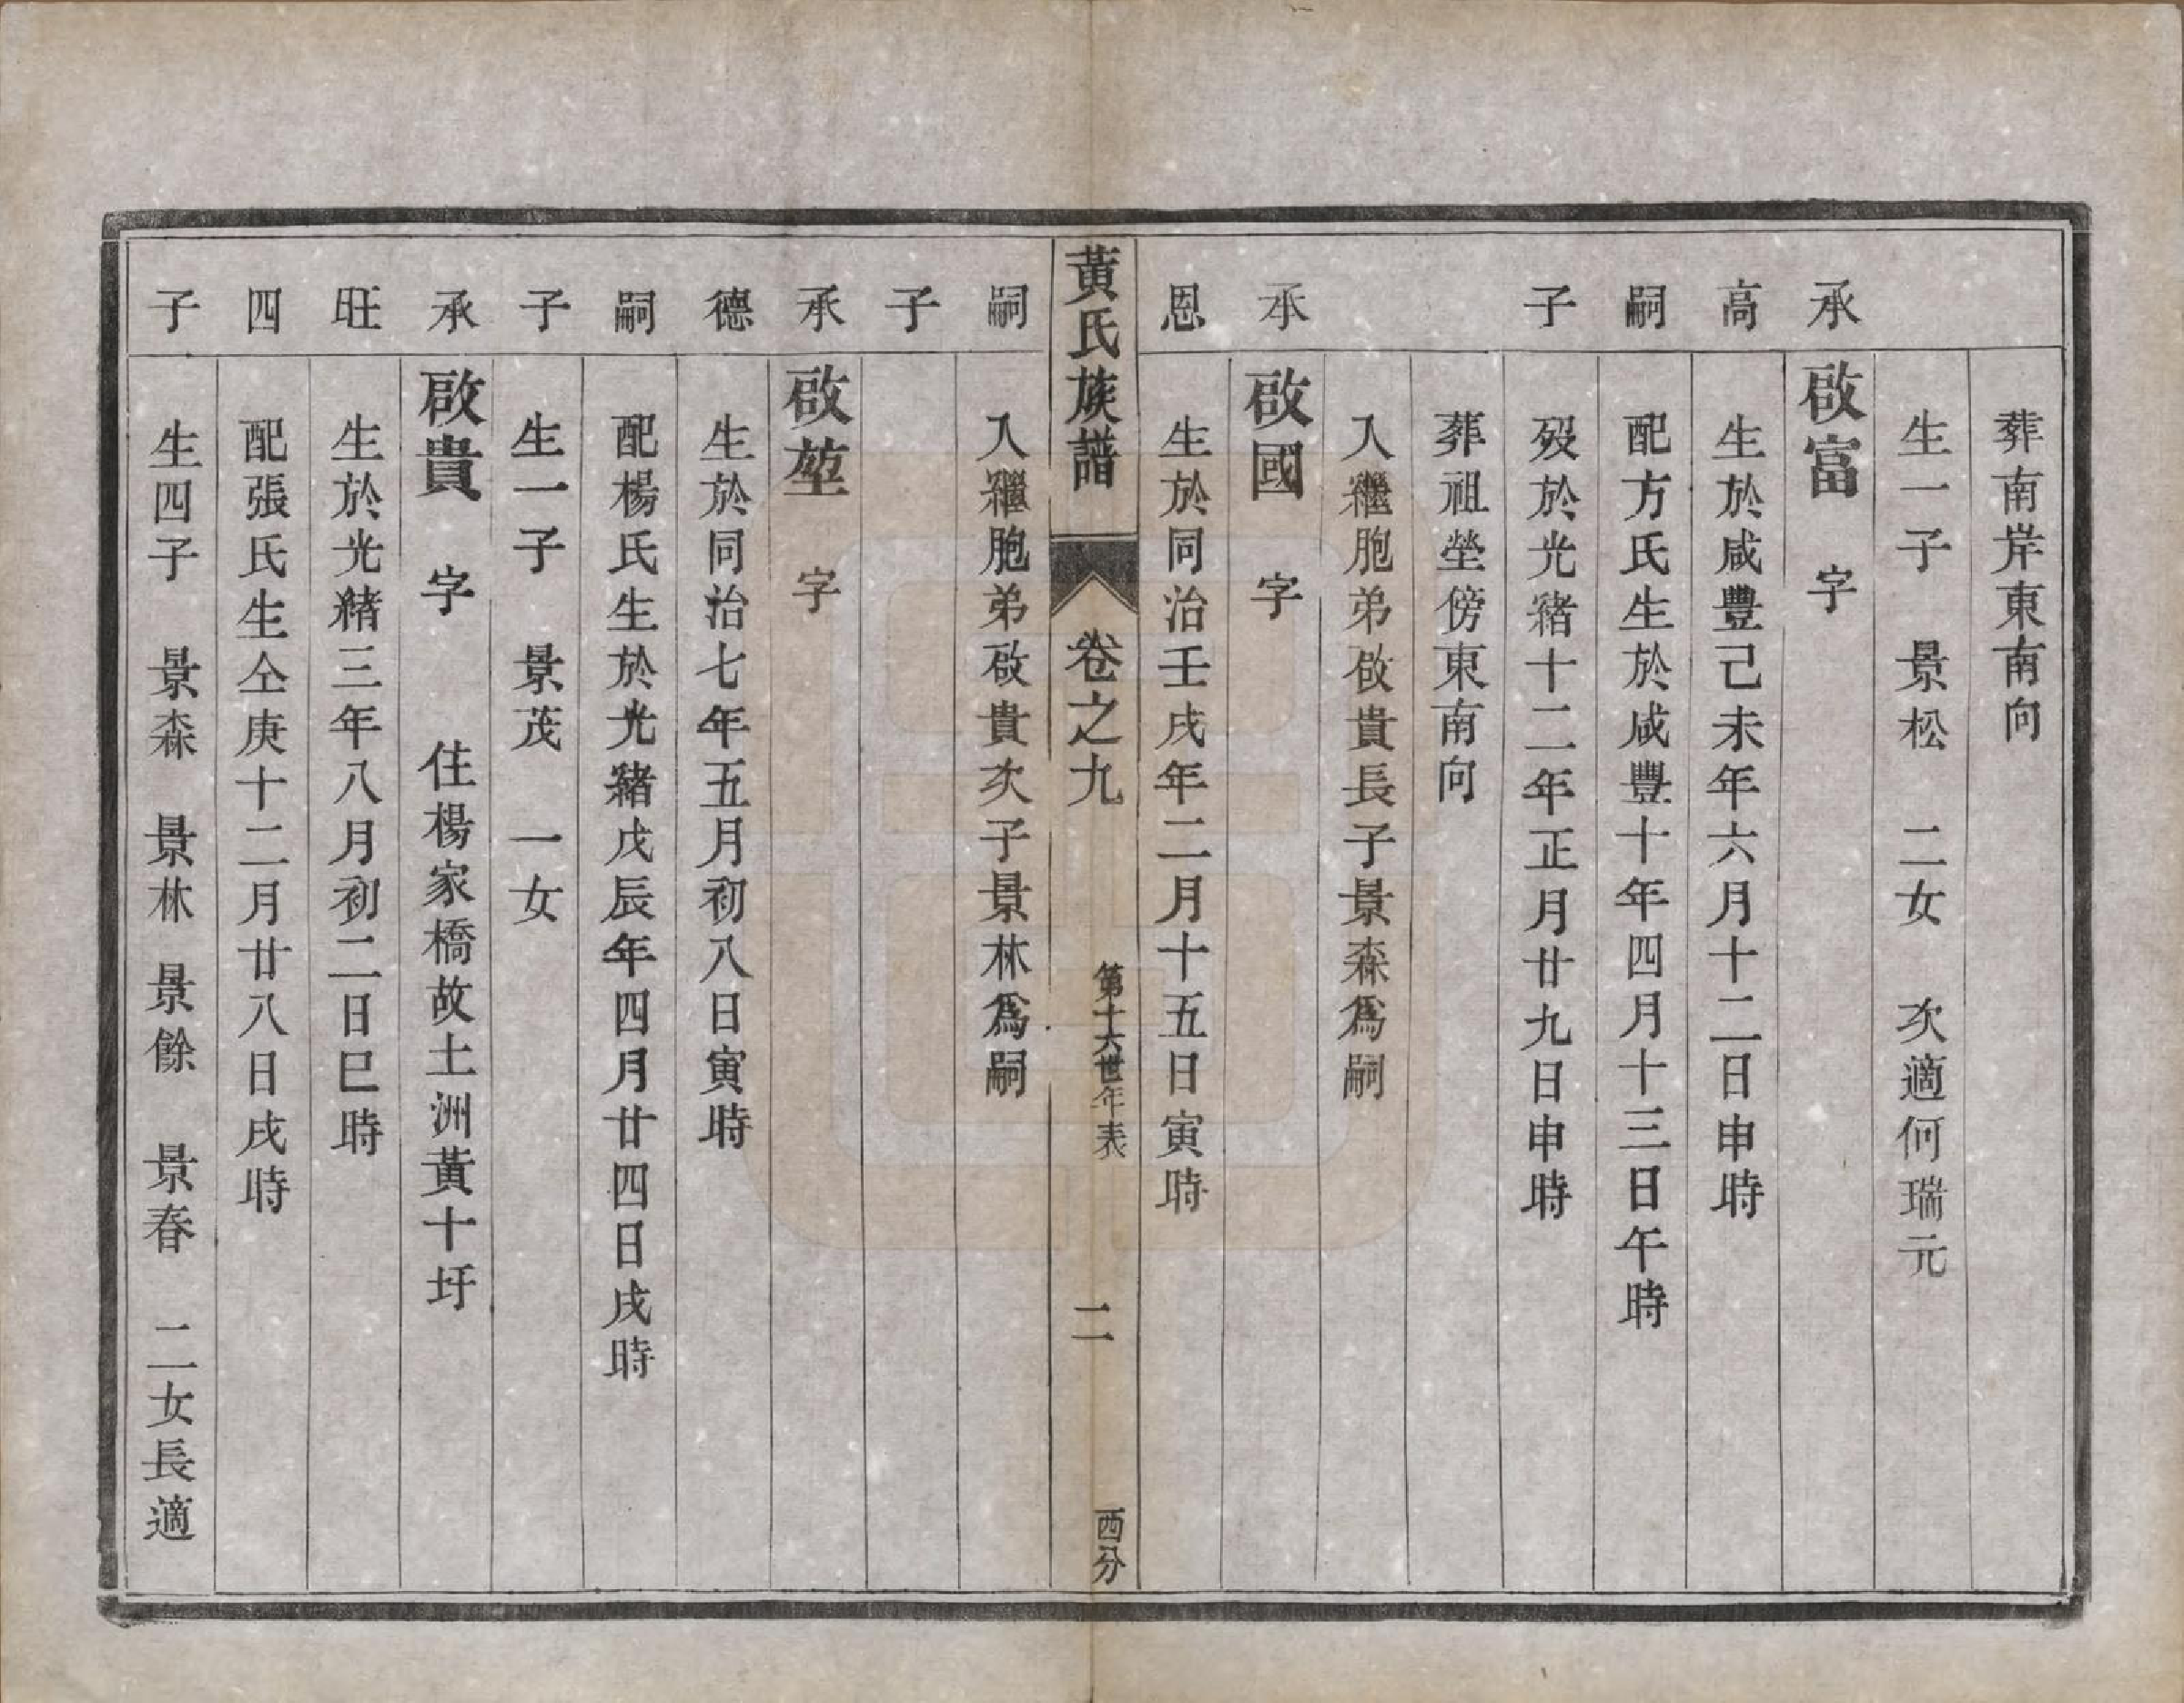 葬南岸東南向
生一子　景松　二女　次適何瑞元
承　啟富　字
高　生於咸豐己未年六月十二日申時
嗣　配方氏生於咸豐十年四月十三日午時
子　歿於光緒十二年正月廿九日申時
葬祖塋傍東南向
入繼胞弟啟貴長子景森爲嗣
承　啟國　字
恩　生於同治壬戌年二月十五日寅時
黃氏族譜　卷之九　第十六世年表　二　西分
嗣　入繼胞弟啟貴次子景林爲嗣
子
承　啟堃　字
德　生於同治七年五月初八日寅時
嗣　配楊氏生於光緒戊辰年四月廿四日戌時
子　生一子　景茂　一女
承　啟貴　字　住楊家橋故土洲黃十圩
旺　生於光緒三年八月初二日巳時
四　配張氏生仝庚十二月廿八日戌時
子　生四子　景森　景林　景餘　景春　二女長適